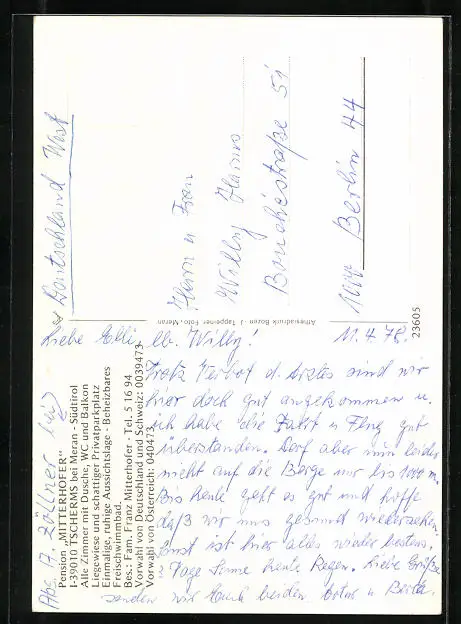 Pension „MITTERHOFER"
I-39010 TSCHERMS bei Meran - Südtirol
Alle Zimmer mit Dusche, WC und Balkon
Liegewiese und schattiger Privatparkplatz
Einmalige, ruhige Aussichtslage - Beheizbares
Freischwimmbad.
Bes.: Fam. Franz Mitterhofer - Tel. 5 16 94
Vorwahl von Deutschland und Schweiz: 0039473
Vorwahl von Österreich: 040473
Abs. A. Zöllner
Liebe Elli, lb. Willy! 11.4.78.
trotz Verbot d. Arztes sind wir
hier doch gut angekommen u.
ich habe die Fahrt u Flug gut
überstanden. Darf aber nun leider
nicht auf die Berge nur bis 1000 m.
Bis heute geht es gut und hoffe
daß wir uns gesund wiedersehen.
Sonst ist hier alles wieder bestens.
Tage Sonne heute Regen. Liebe Grüße
senden wir Euch beiden u
Aftersadruck Bozen - J. Tappeiner Foto, Meran
23605
Herrn u Frau
Willy
51
1000 Berlin 44
Deutschland West